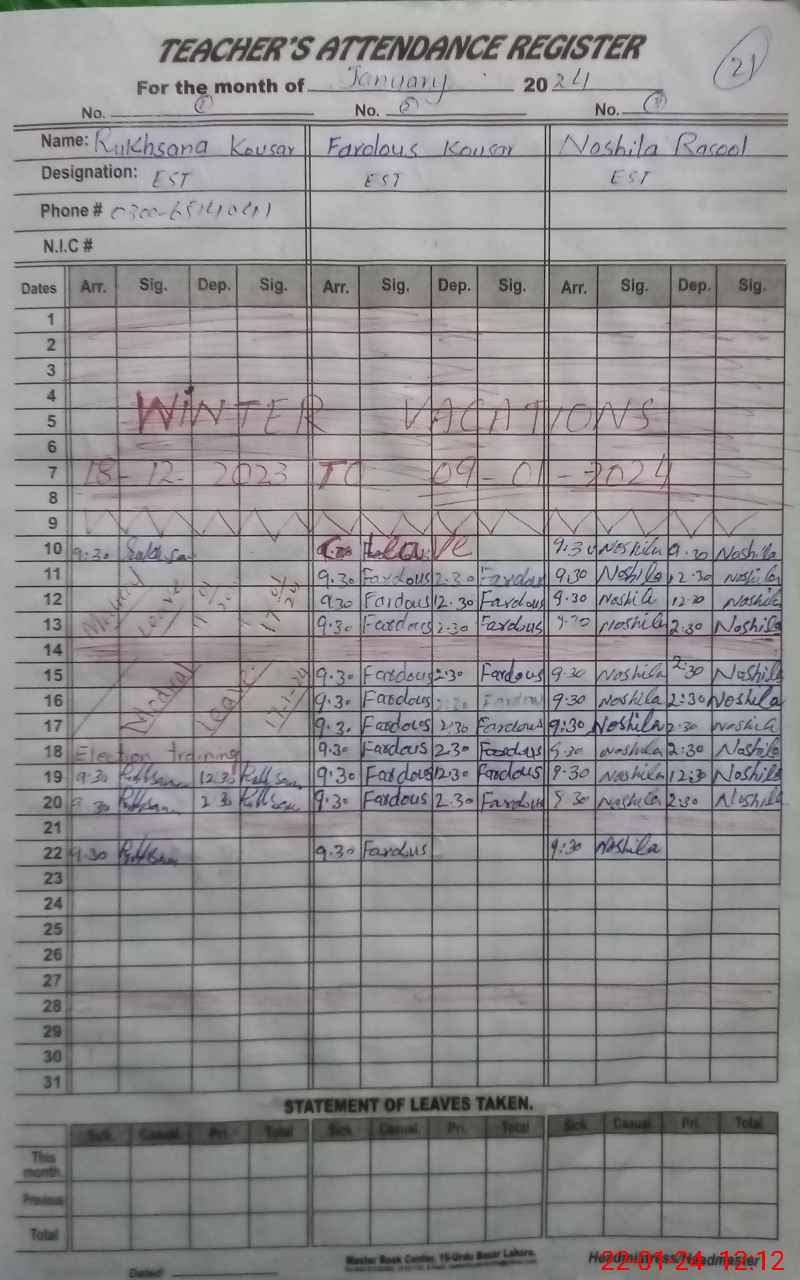 TEACHER'S ATTENDANCE REGISTER
21
For the month of January 2024
No. No. No.
Name: Rukhsana Kousar Fardous Kousar Noshila Rasool
Designation: EST EST EST
Phone # 0300-6514041
N.I.C #
Dates Arr. Sig. Dep. Sig. Arr. Sig. Dep. Sig. Arr. Sig. Dep. Sig.
1
2
3
4
5 WINTER VACATIONS
6
7 18-12-2023 TO 09-01-2024
8
9
10 9:30 Leave 9:30 Noshila 9.30 Noshila
11 Medical Leave 9.30 Fardous 2.30 Fardous 9.30 Noshila 12.30 Noshila
12 9.30 Fardous 12.30 Fardous 9.30 Noshila 12.30 Noshila
13 9.30 Fardous 2.30 Fardous 9.30 Noshila 2:30 Noshila
14
15 Medical Leave 9.30 Fardous 2:30 Fardous 9.30 Noshila 2:30 Noshila
16 9.30 Fardous 2:30 Fardous 9.30 Noshila 2:30 Noshila
17 17-1-24 9.3. Fardous 2.30 Fardous 9:30 Noshila 2.30 Noshila
18 Election training 9.30 Fardous 2.30 Fardous 9.30 Noshila 2:30 Noshila
19 9.30 12.30 9.30 Fardous 12.30 Fardous 9.30 Noshila 12:30 Noshila
20 9.30 2.30 9.30 Fardous 2.30 Fardous 9.30 Noshila 2:30 Noshila
21
22 9.30 9.30 Fardous 9:30 Noshila
23
24
25
26
27
28
29
30
31
STATEMENT OF LEAVES TAKEN.
Sick Casual Pri. Total Sick Casual Pri. Total Sick Casual Pri. Total
This month.
Previous
Total
Dated: Master Book Center, 16-Urdu Bazar Lahore. Headmistress/Headmaster
22-01-24 12:12